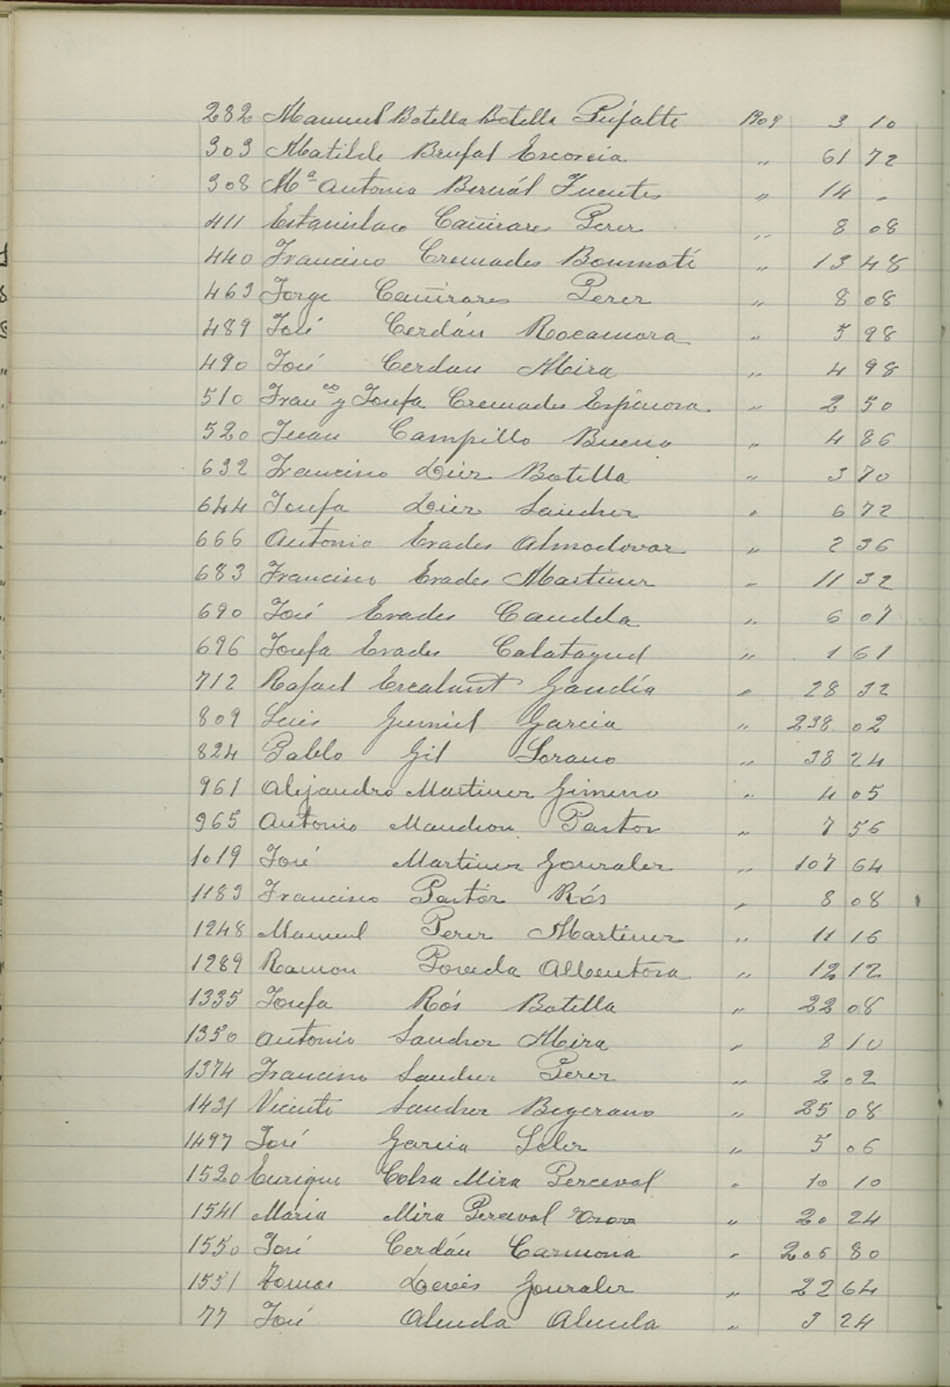 232 Manuel Botella Botella Pujalte 1909 3 10
303 Matilde Brufal Escorcia " 61 72
308 Mª Antonia Bernál Fuentes " 14 -
411 Estanislao Cañizares Perez " 8 08
440 Francisco Cremades Boumatí " 13 48
463 Jorge Cañizares Perez " 8 08
489 José Cerdán Rocamora " 5 98
490 José Cerdan Mira " 4 98
510 Franco y Josefa Cremades Espinosa " 2 50
520 Juan Campillo Bueno " 4 86
632 Francisco Diez Botella " 3 70
644 Josefa Diez Sanchez " 6 72
666 Antonio Erades Almodovar " 2 36
683 Francisco Erades Martinez " 11 32
690 José Erades Candela " 6 07
696 Josefa Erades Calatayud " 1 61
712 Rafael Escalant Gandía " 28 32
809 Luis Gumiel Garcia " 238 02
824 Pablo Gil Sorano " 38 24
961 Alejandro Martinez Gimeno " 4 05
965 Antonio Manchon Pastor " 7 56
1019 José Martinez Gonzalez " 107 64
1183 Francisco Pastór Rós " 8 08
1248 Manuel Perez Martinez " 11 16
1289 Ramon Poveda Albentosa " 12 12
1335 Josefa Rós Botella " 22 08
1350 Antonio Sanchez Mira " 8 10
1374 Francisco Sanchez Perez " 2 02
1421 Vicente Sanchez Begerano " 25 08
1497 José Garcia Soler " 5 06
1520 Enrique Mira Perceval " 10 10
1541 Maria Mira Perceval " 20 24
1550 José Cerdán Carmona " 206 80
1551 Tomas Devés Gonzalez " 22 64
77 José Almela Almela " 3 24